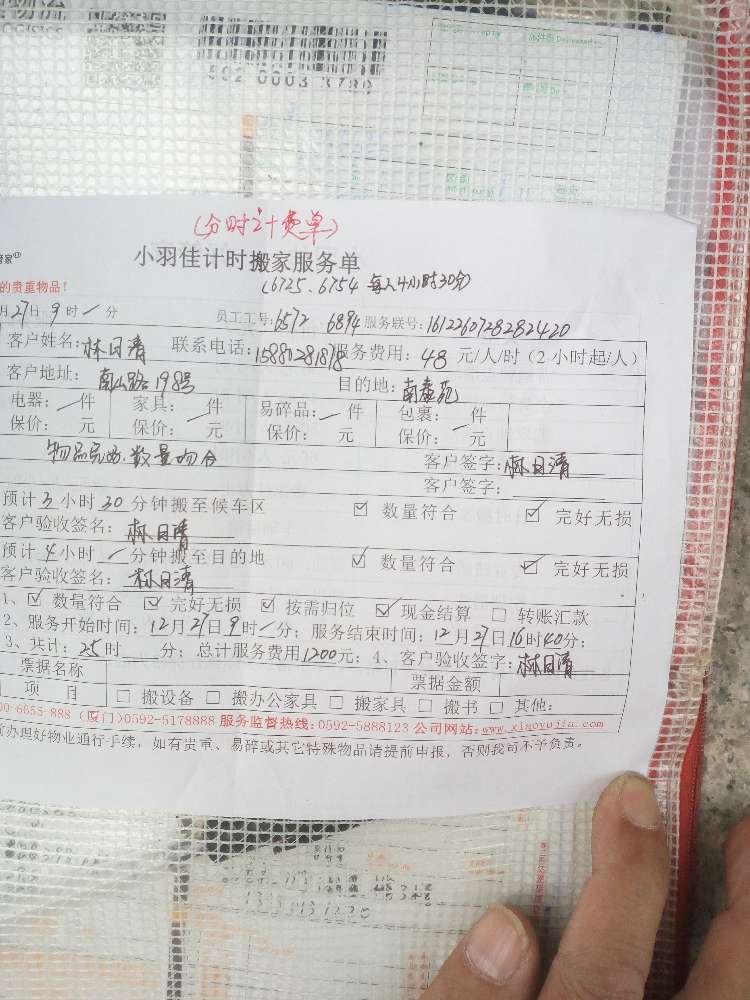 502 0003 3780
(分时计费单)
小羽佳计时搬家服务单
(6725、6754 每人4小时30分)
的贵重物品!
月27日9时/分 员工工号:6572 6894 服务联号:1612260728282420
客户姓名:林日清 联系电话:15880281878 服务费用:48元/人/时(2小时起/人)
客户地址:南山路198号 目的地:南泰苑
电器:/件 家具:/件 易碎品:/件 包裹:/件
保价: 元 保价: 元 保价: 元 保价: 元
物品完好.数量吻合 客户签字:林日清
客户签字:
预计3小时30分钟搬至候车区 ☑ 数量符合 ☑ 完好无损
客户验收签名:林日清
预计4小时/分钟搬至目的地 ☑ 数量符合 ☑ 完好无损
客户验收签名:林日清
1、☑ 数量符合 ☑ 完好无损 ☑ 按需归位 ☑ 现金结算 □ 转账汇款
2、服务开始时间:12月27日9时/分;服务结束时间:12月27日16时40分;
3、共计:25时 分;总计服务费用1200元;4、客户验收签字:林日清
票据名称 票据金额
项 目 □ 搬设备 □ 搬办公家具 □ 搬家具 □ 搬书 □ 其他:
00-6655-888 (厦门)0592-5178888 服务监督热线:0592-5888123 公司网站:www.xiaoyujia.com
前办理好物业通行手续,如有贵重、易碎或其它特殊物品请提前申报,否则我司不予负责。